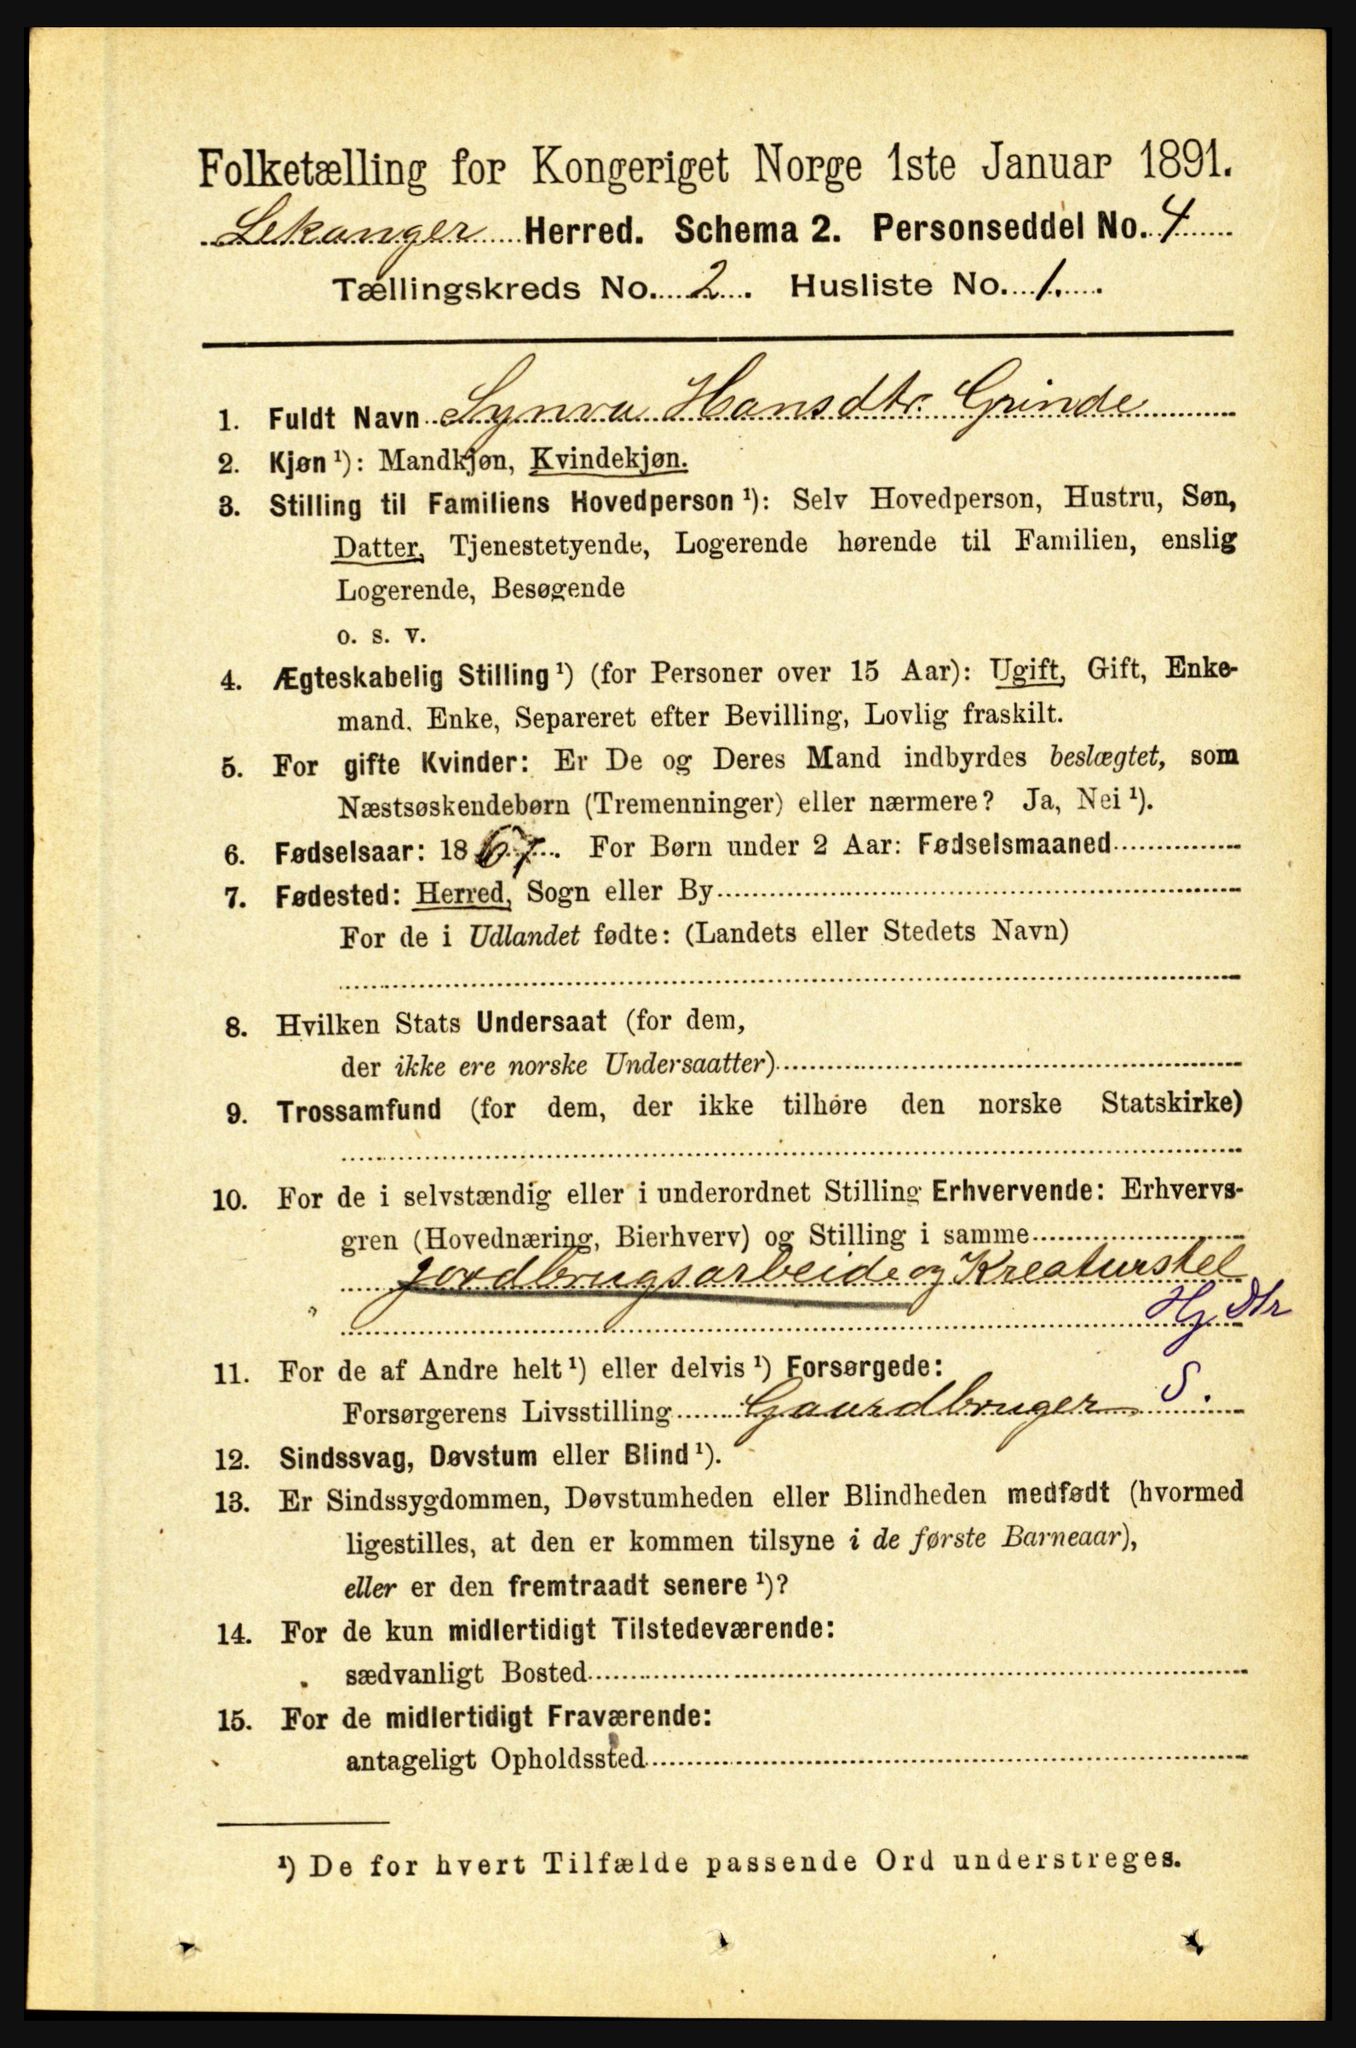 Folketælling for Kongeriget Norge 1ste Januar 1891.
Lekanger Herred. Schema 2. Personseddel No. 4
Tællingskreds No. 2. Husliste No. 1.
1. Fuldt Navn Synva Hansdtr. Grinde
2. Kjøn ¹): Mandkjøn, Kvindekjøn.
3. Stilling til Familiens Hovedperson ¹): Selv Hovedperson, Hustru, Søn,
Datter, Tjenestetyende, Logerende hørende til Familien, enslig
Logerende, Besøgende
o. s. v.
4. Ægteskabelig Stilling ¹) (for Personer over 15 Aar): Ugift, Gift, Enke-
mand, Enke, Separeret efter Bevilling, Lovlig fraskilt.
5. For gifte Kvinder: Er De og Deres Mand indbyrdes beslægtet, som
Næstsøskendebørn (Tremenninger) eller nærmere? Ja, Nei ¹).
6. Fødselsaar: 1867. For Børn under 2 Aar: Fødselsmaaned
7. Fødested: Herred, Sogn eller By
For de i Udlandet fødte: (Landets eller Stedets Navn)
8. Hvilken Stats Undersaat (for dem,
der ikke ere norske Undersaatter)
9. Trossamfund (for dem, der ikke tilhøre den norske Statskirke)
10. For de i selvstændig eller i underordnet Stilling Erhvervende: Erhvervs-
gren (Hovednæring, Bierhverv) og Stilling i samme
jordbrugsarbeide og Kreaturstel
Hj Dtr
11. For de af Andre helt ¹) eller delvis ¹) Forsørgede:
Forsørgerens Livsstilling Gaardbruger S.
12. Sindssvag, Døvstum eller Blind ¹).
13. Er Sindssygdommen, Døvstumheden eller Blindheden medfødt (hvormed
ligestilles, at den er kommen tilsyne i de første Barneaar),
eller er den fremtraadt senere ¹)?
14. For de kun midlertidigt Tilstedeværende:
sædvanligt Bosted
15. For de midlertidigt Fraværende:
antageligt Opholdssted
¹) De for hvert Tilfælde passende Ord understreges.